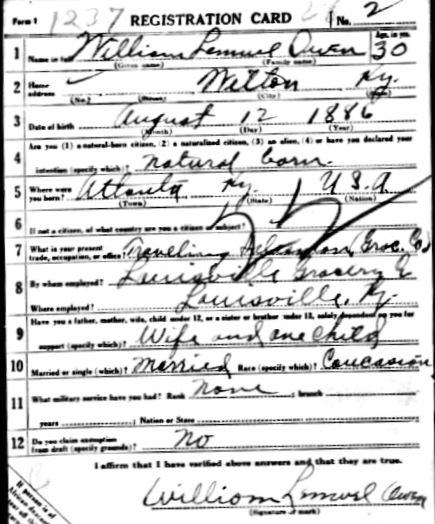 Form 1 1237 REGISTRATION CARD No. 2
1 Name in full William Lemuel Owen Age, in yrs. 30
(Given name) (Family name)
2 Home address Wilton Ky.
(No.) (Street) (City) (State)
3 Date of birth August 12 1886
(Month) (Day) (Year)
Are you (1) a natural-born citizen, (2) a naturalized citizen, (3) an alien, (4) or have you declared your
4 intention (specify which)? natural born
5 Where were you born? Atlanta Ky. U.S.A.
(Town) (State) (Nation)
6 If not a citizen, of what country are you a citizen or subject?
7 What is your present trade, occupation, or office? Traveling Salesman (Groc. Co.)
8 By whom employed? Louisville Grocery Co
Where employed? Louisville, Ky.
Have you a father, mother, wife, child under 12, or a sister or brother under 12, solely dependent on you for
9 support (specify which)? Wife and one child
10 Married or single (which)? Married Race (specify which)? Caucasion
11 What military service have you had? Rank none ; branch
years ; Nation or State
12 Do you claim exemption from draft (specify grounds)? No
I affirm that I have verified above answers and that they are true.
William Lemuel Owen
(Signature or mark)
If person is of
African descent